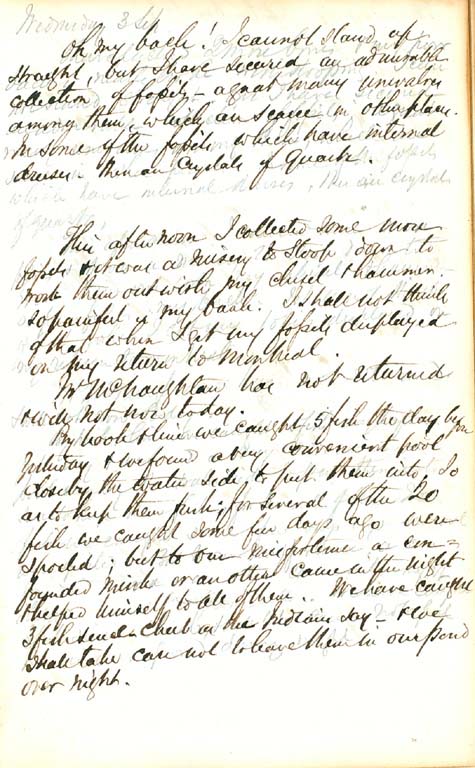 Wednesday 3 Sep
Oh my back! I cannot stand up
straight, but I have secured an admirable
collection of fossils - a great many univalves
among them, which are scarce in other places.
In some of the fossils which have internal
there are Crystals of Quartz.
This afternoon I collected some more
fossils & it was a misery to stoop down to
work them out with my chisel & hammer -
so painful is my back. I shall not think
of that when I get my fossils displayed
on my return to Montreal.
Mr McNaughtan has not returned
& will not now today.
By hook & line we caught 5 fish the day before
yesterday & we found a very convenient pool
close by the water side, to put them into, so
as to keep them fresh; for several of the 20
fish we caught some few days ago were
spoiled; but to our misfortune a con=
founded mink or another came in the night
& helped himself to all of them. We have caught
3 fish since - Chub as the Indians say - & we
shall take care not to leave them in our pond
over night.